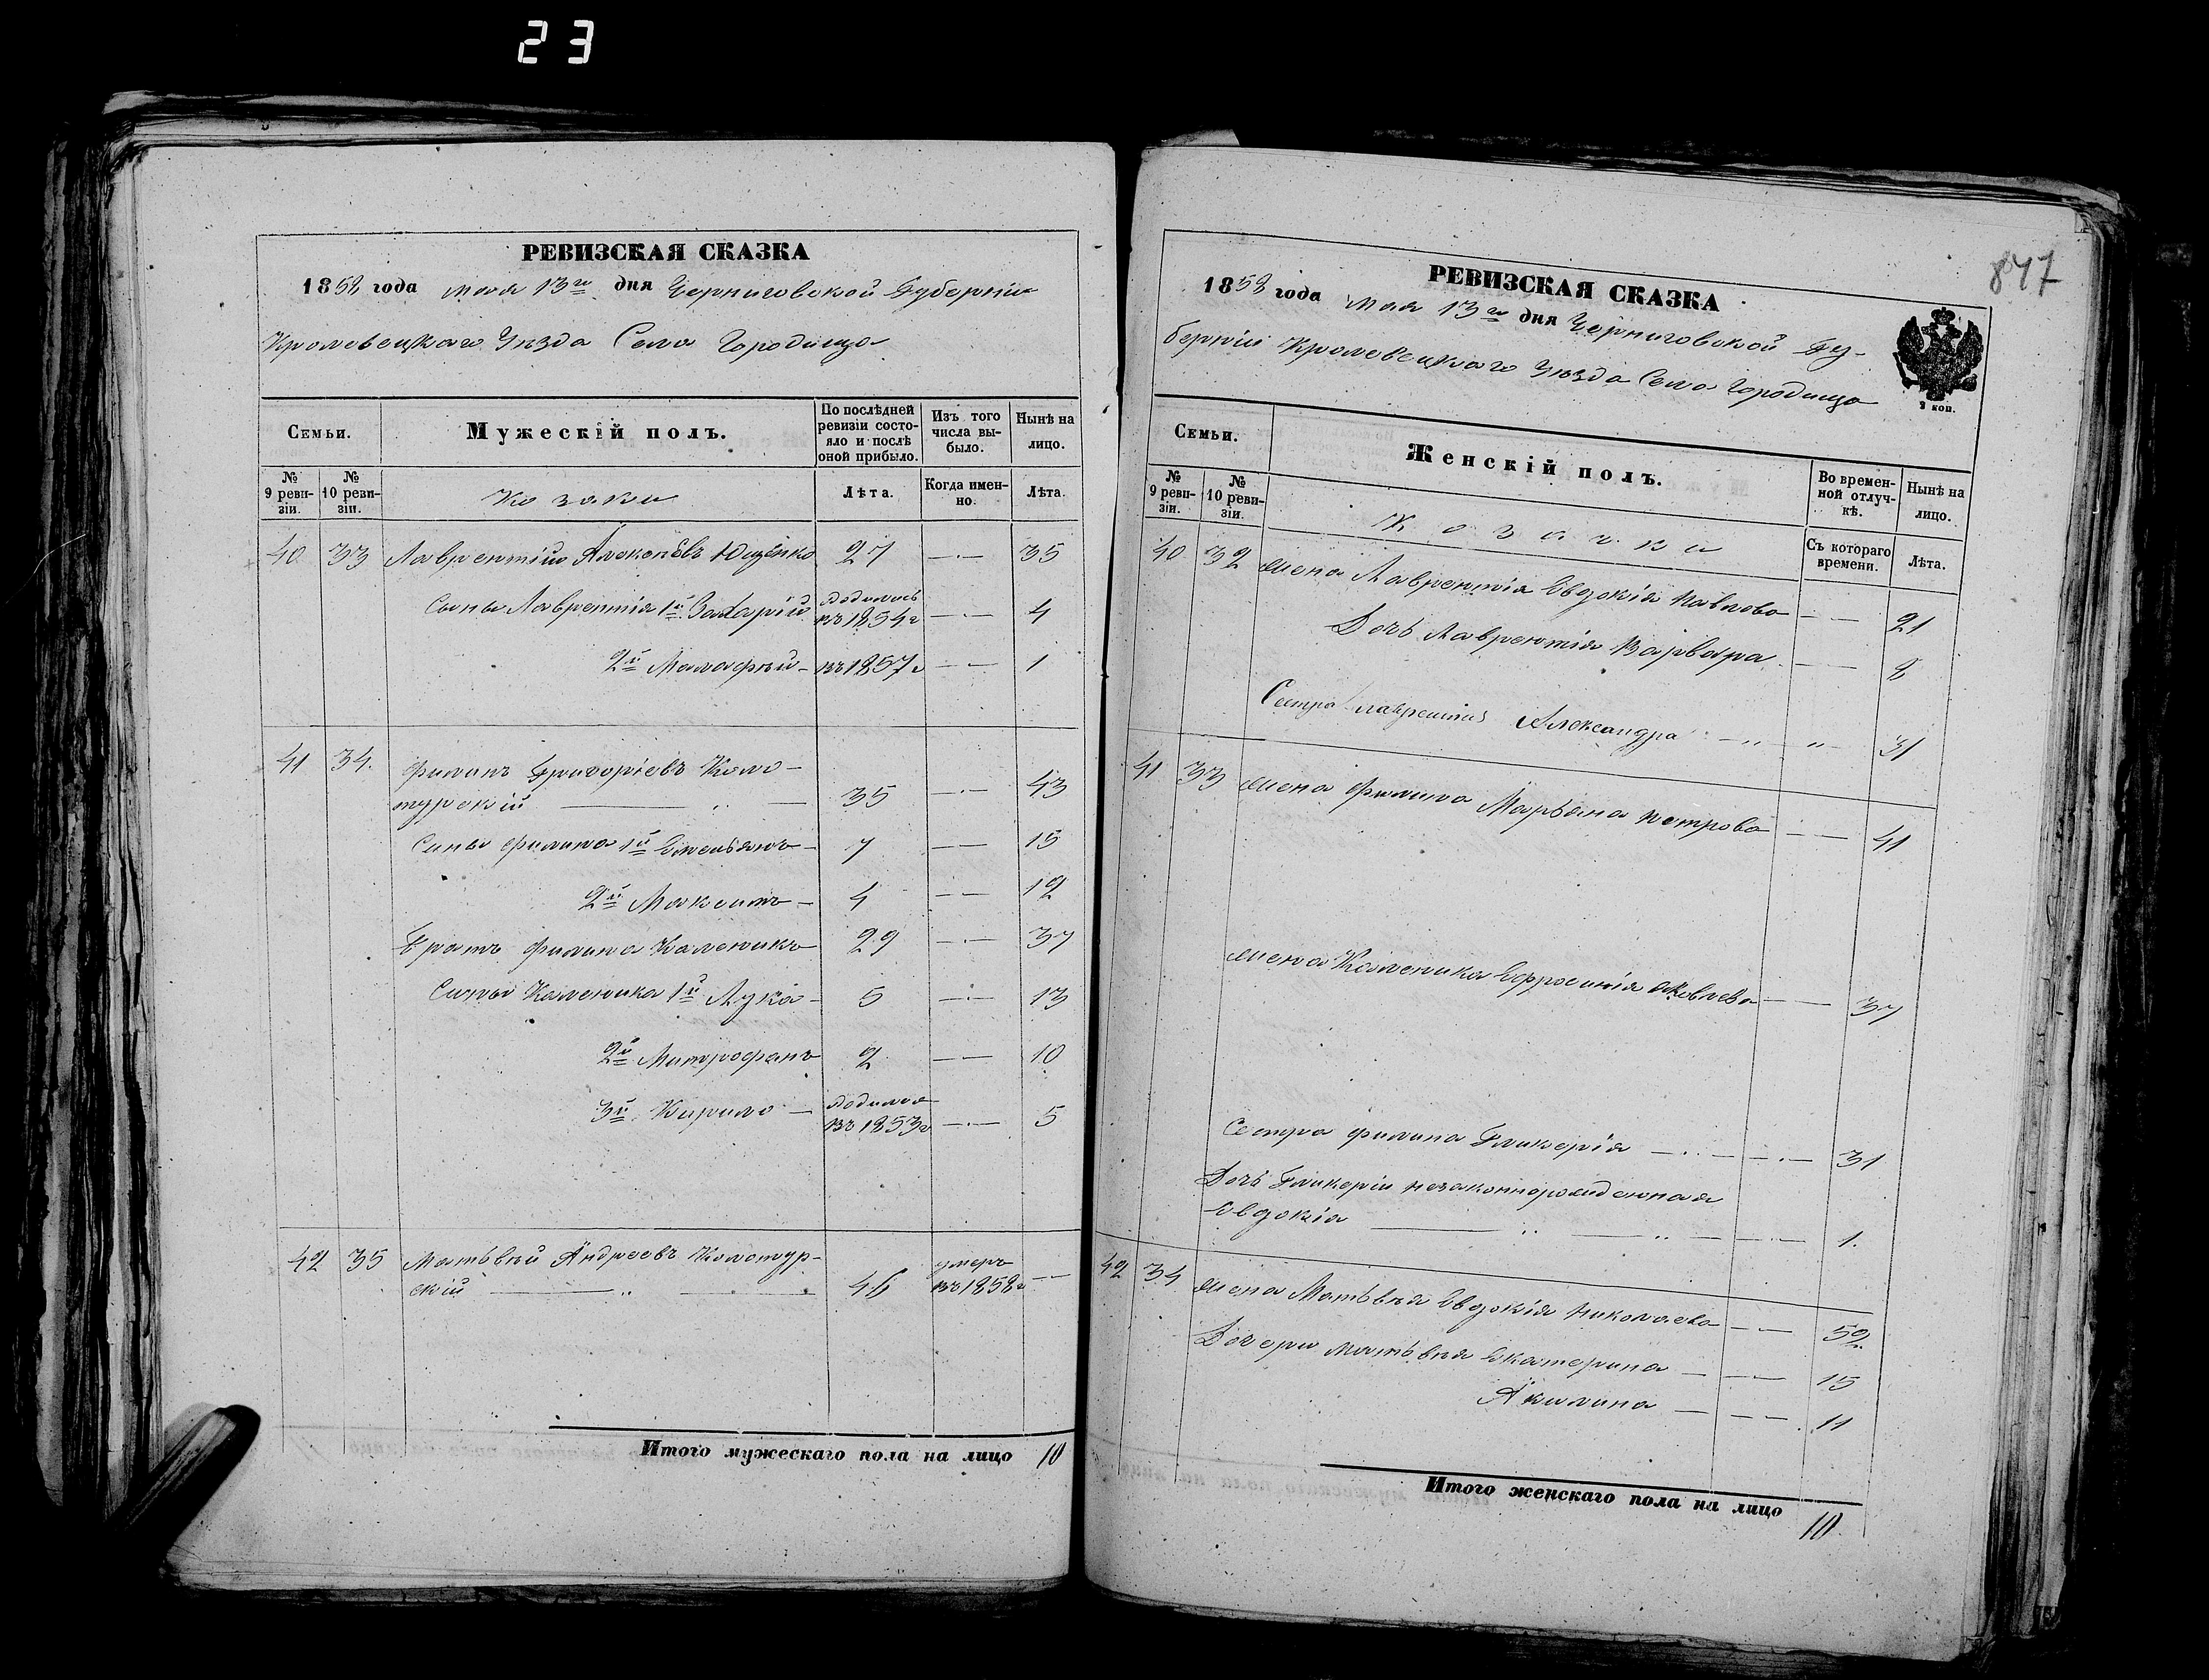 23
РЕВИЗСКАЯ СКАЗКА
1858 года мая 13го дня Черниговской Губерніи
Кролевецкаго Уѣзда Села Городища
Семьи. Мужескій полъ. По послѣдней ревизіи состояло и послѣ оной прибыло. Изъ того числа выбыло. Нынѣ на лицо.
№ 9 ревизіи. № 10 ревизіи. Козаки Лѣта. Когда именно. Лѣта.
40 33 Лаврентій Ющенко 27 — 35
Сыны Лаврентія 1й Захарій родился въ 1854г — 4
2й Малафѣй — въ 1857г — 1
41 34. Филипъ Григоріевъ Коло-
турскій — 35 — 43
Сыны Филипа 1й Емельянъ — 7 — 15
2й Максимъ — 4 — 12
Братъ Филипа Каленикъ 29 — 37
Сыны Каленика 1й Лука — 5 — 13
2й Митрофанъ 2 — 10
3й Кирило — родился въ 1853г — 5
42 35 Матьвѣй Андреевъ Колотур-
скій — 46 умеръ въ 1858г —
Итого мужескаго пола на лицо 10
847
РЕВИЗСКАЯ СКАЗКА
1858 года мая 13го дня Черниговской Гу-
берніи Кролевецкаго Уѣзда Села Городища
2 коп.
Семьи. Женскій полъ. Во временной отлучкѣ. Нынѣ на лицо.
№ 9 ревизіи. № 10 ревизіи. Козачки Съ котораго времени. Лѣта.
40 32 Жена Лаврентія Евдокія Павлова — 21
Дочь Лаврентія Варвара — 8
Сестра Лаврентія Александра — 31
41 33 Жена Филипа Марьяна Петрова — 41
Жена Каленика Ефросинія Яковлева — 37
Сестра Филипа Гликерія — 31
Дочь Гликеріи незаконнорожденная
Евдокія — 1.
42 34 Жена Матьвѣя Евдокія Николаева — 52
Дочери Матьвѣя Екатерина — 15
Акилина — 11
Итого женскаго пола на лицо
10